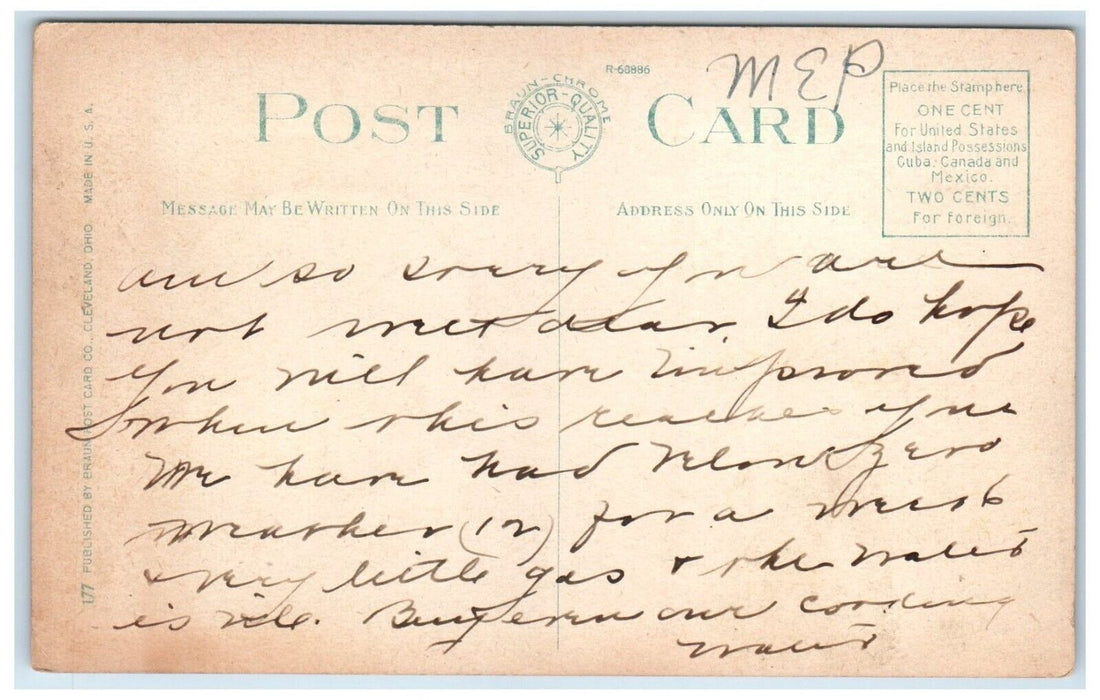 MEP
R-68886
BRAUN-CHROME
SUPERIOR-QUALITY
POST CARD
Place the Stamp here
ONE CENT
For United States
and Island Possessions
Cuba, Canada and
Mexico.
TWO CENTS
For Foreign.
MESSAGE MAY BE WRITTEN ON THIS SIDE
ADDRESS ONLY ON THIS SIDE
177 PUBLISHED BY BRAUN POST CARD CO., CLEVELAND, OHIO. MADE IN U.S.A.
am so sorry you are
not well dear I do hope
you will have improved
when this reaches you
We have had below zero
weather (12) for a week
+ very little gas + the water
is vile. Buy even our cooking
water